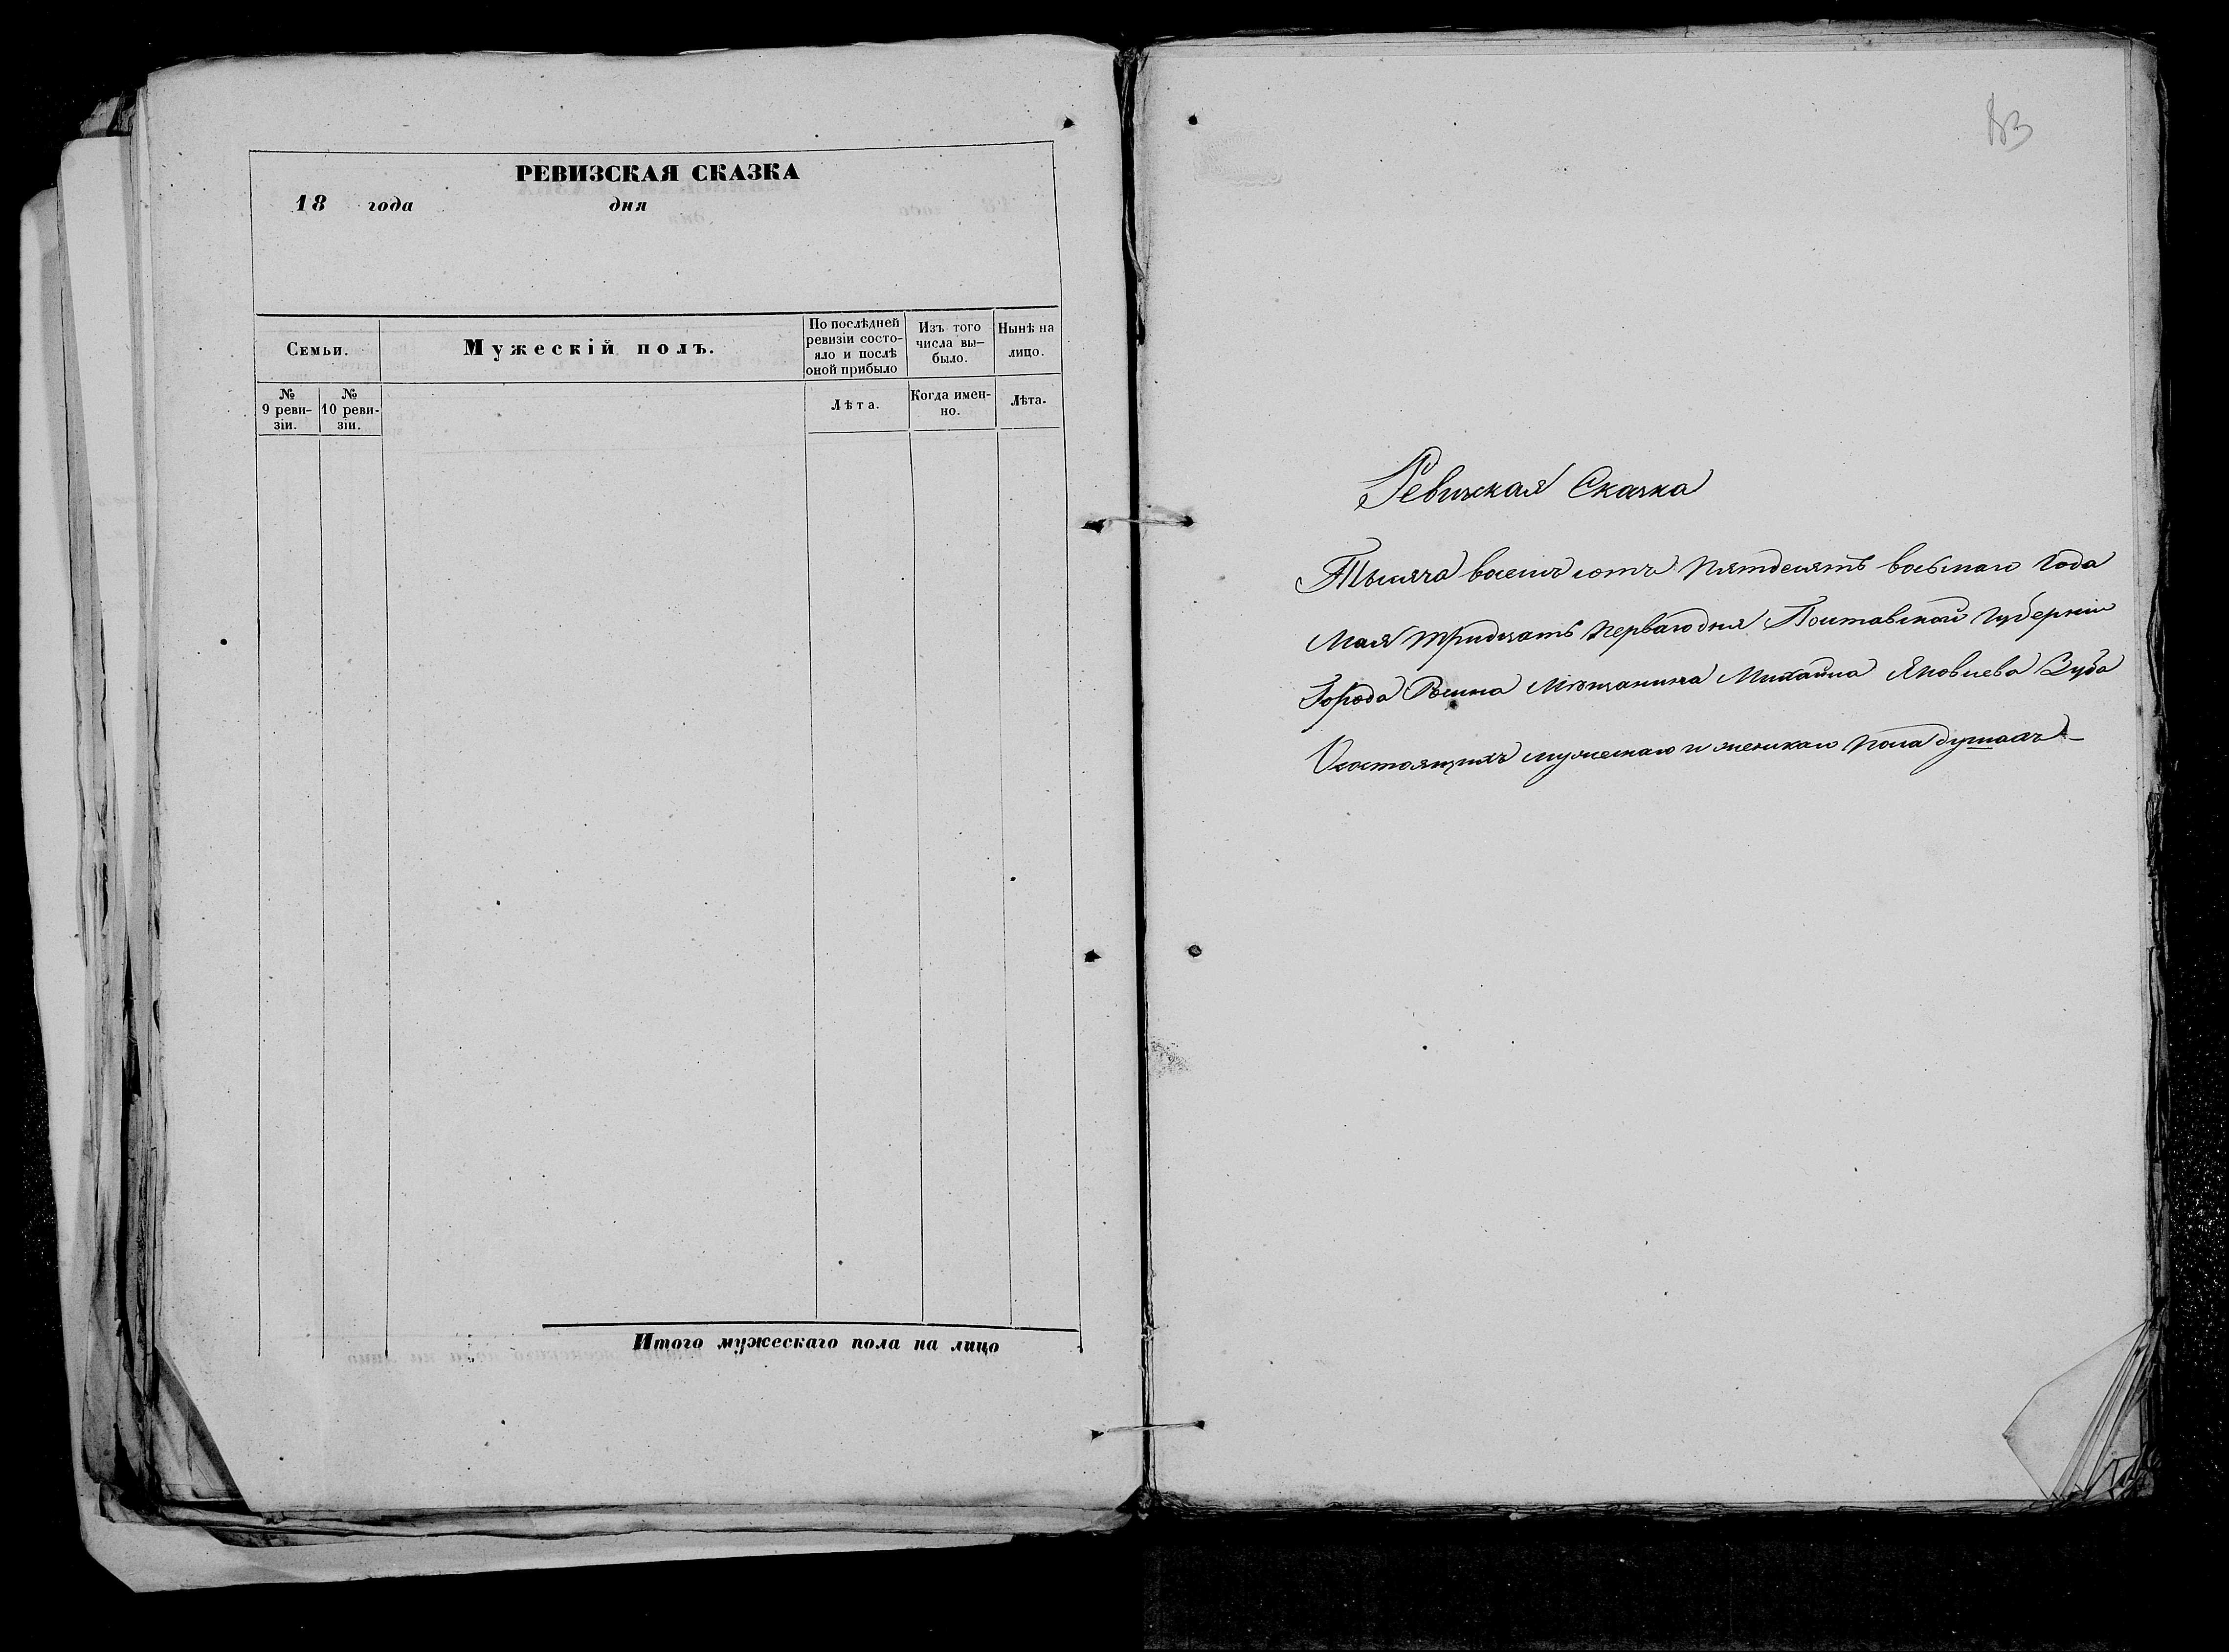 РЕВИЗСКАЯ СКАЗКА
18 года дня
Семьи.
Мужескій полъ.
По послѣдней
ревизіи состо-
яло и послѣ
оной прибыло
Изъ того
числа вы-
было.
Нынѣ на
лицо.
№
9 реви-
зіи.
№
10 реви-
зіи.
Лѣта.
Когда имен-
но.
Лѣта.
Итого мужескаго пола на лицо
83
Ревизская Сказка
Тысяча восемъ сотъ пятдесятъ восьмаго Года
Мая тридцать перваго дня Полтавской Губерніи
Города Ромна Мѣщанина Михайла Яковлева Зуба
О состоящихъ мужескаго и женскаго пола душахъ